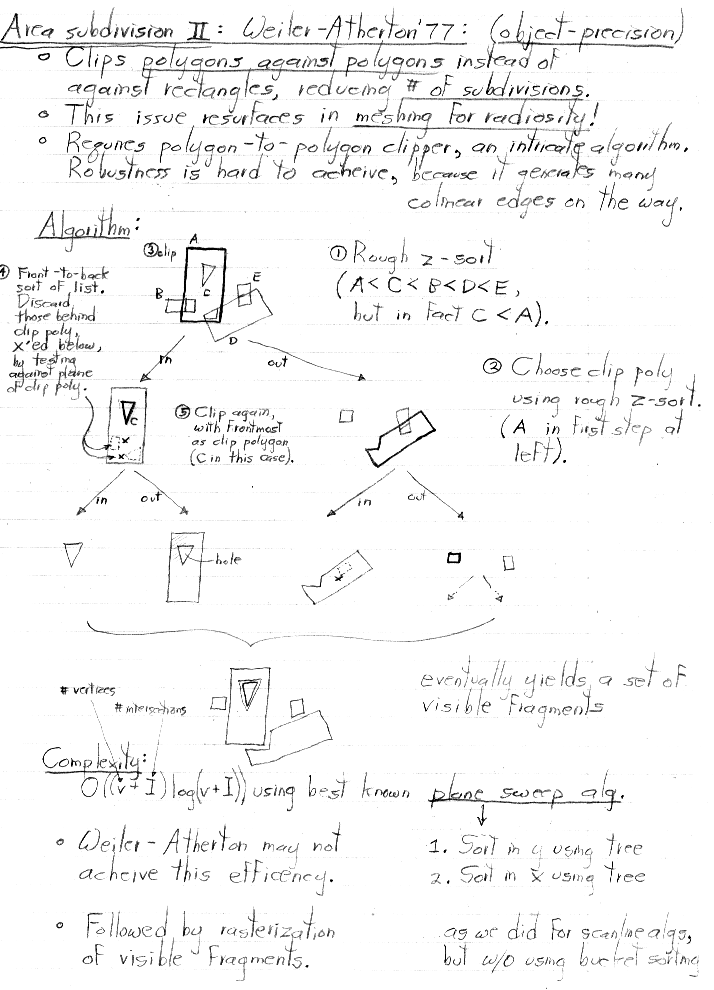 Area subdivision II: Weiler-Atherton '77: (object-precision)
o Clips polygons against polygons instead of
against rectangles, reducing # of subdivisions.
o This issue resurfaces in meshing for radiosity!
o Requires polygon-to-polygon clipper, an intricate algorithm.
Robustness is hard to acheive, because it generates many
colinear edges on the way.
Algorithm:
③ clip
A
B
C
E
D
① Rough z-sort
(A<C<B<D<E,
but in fact C<A).
④ Front-to-back
sort of list.
Discard
those behind
clip poly,
x'ed below,
by testing
against plane
of clip poly.
in
out
② Choose clip poly
using rough z-sort.
(A in first step at
left).
C
⑤ Clip again,
with frontmost
as clip polygon
(C in this case).
in
out
in
out
hole
eventually yields a set of
visible fragments
# vertices
# intersections
Complexity:
O((v+I)log(v+I)) using best known plane sweep alg.
o Weiler-Atherton may not
acheive this efficency.
1. Sort in y using tree
2. Sort in x using tree
o Followed by rasterization
of visible fragments.
as we did for scanline algs,
but w/o using bucket sorting